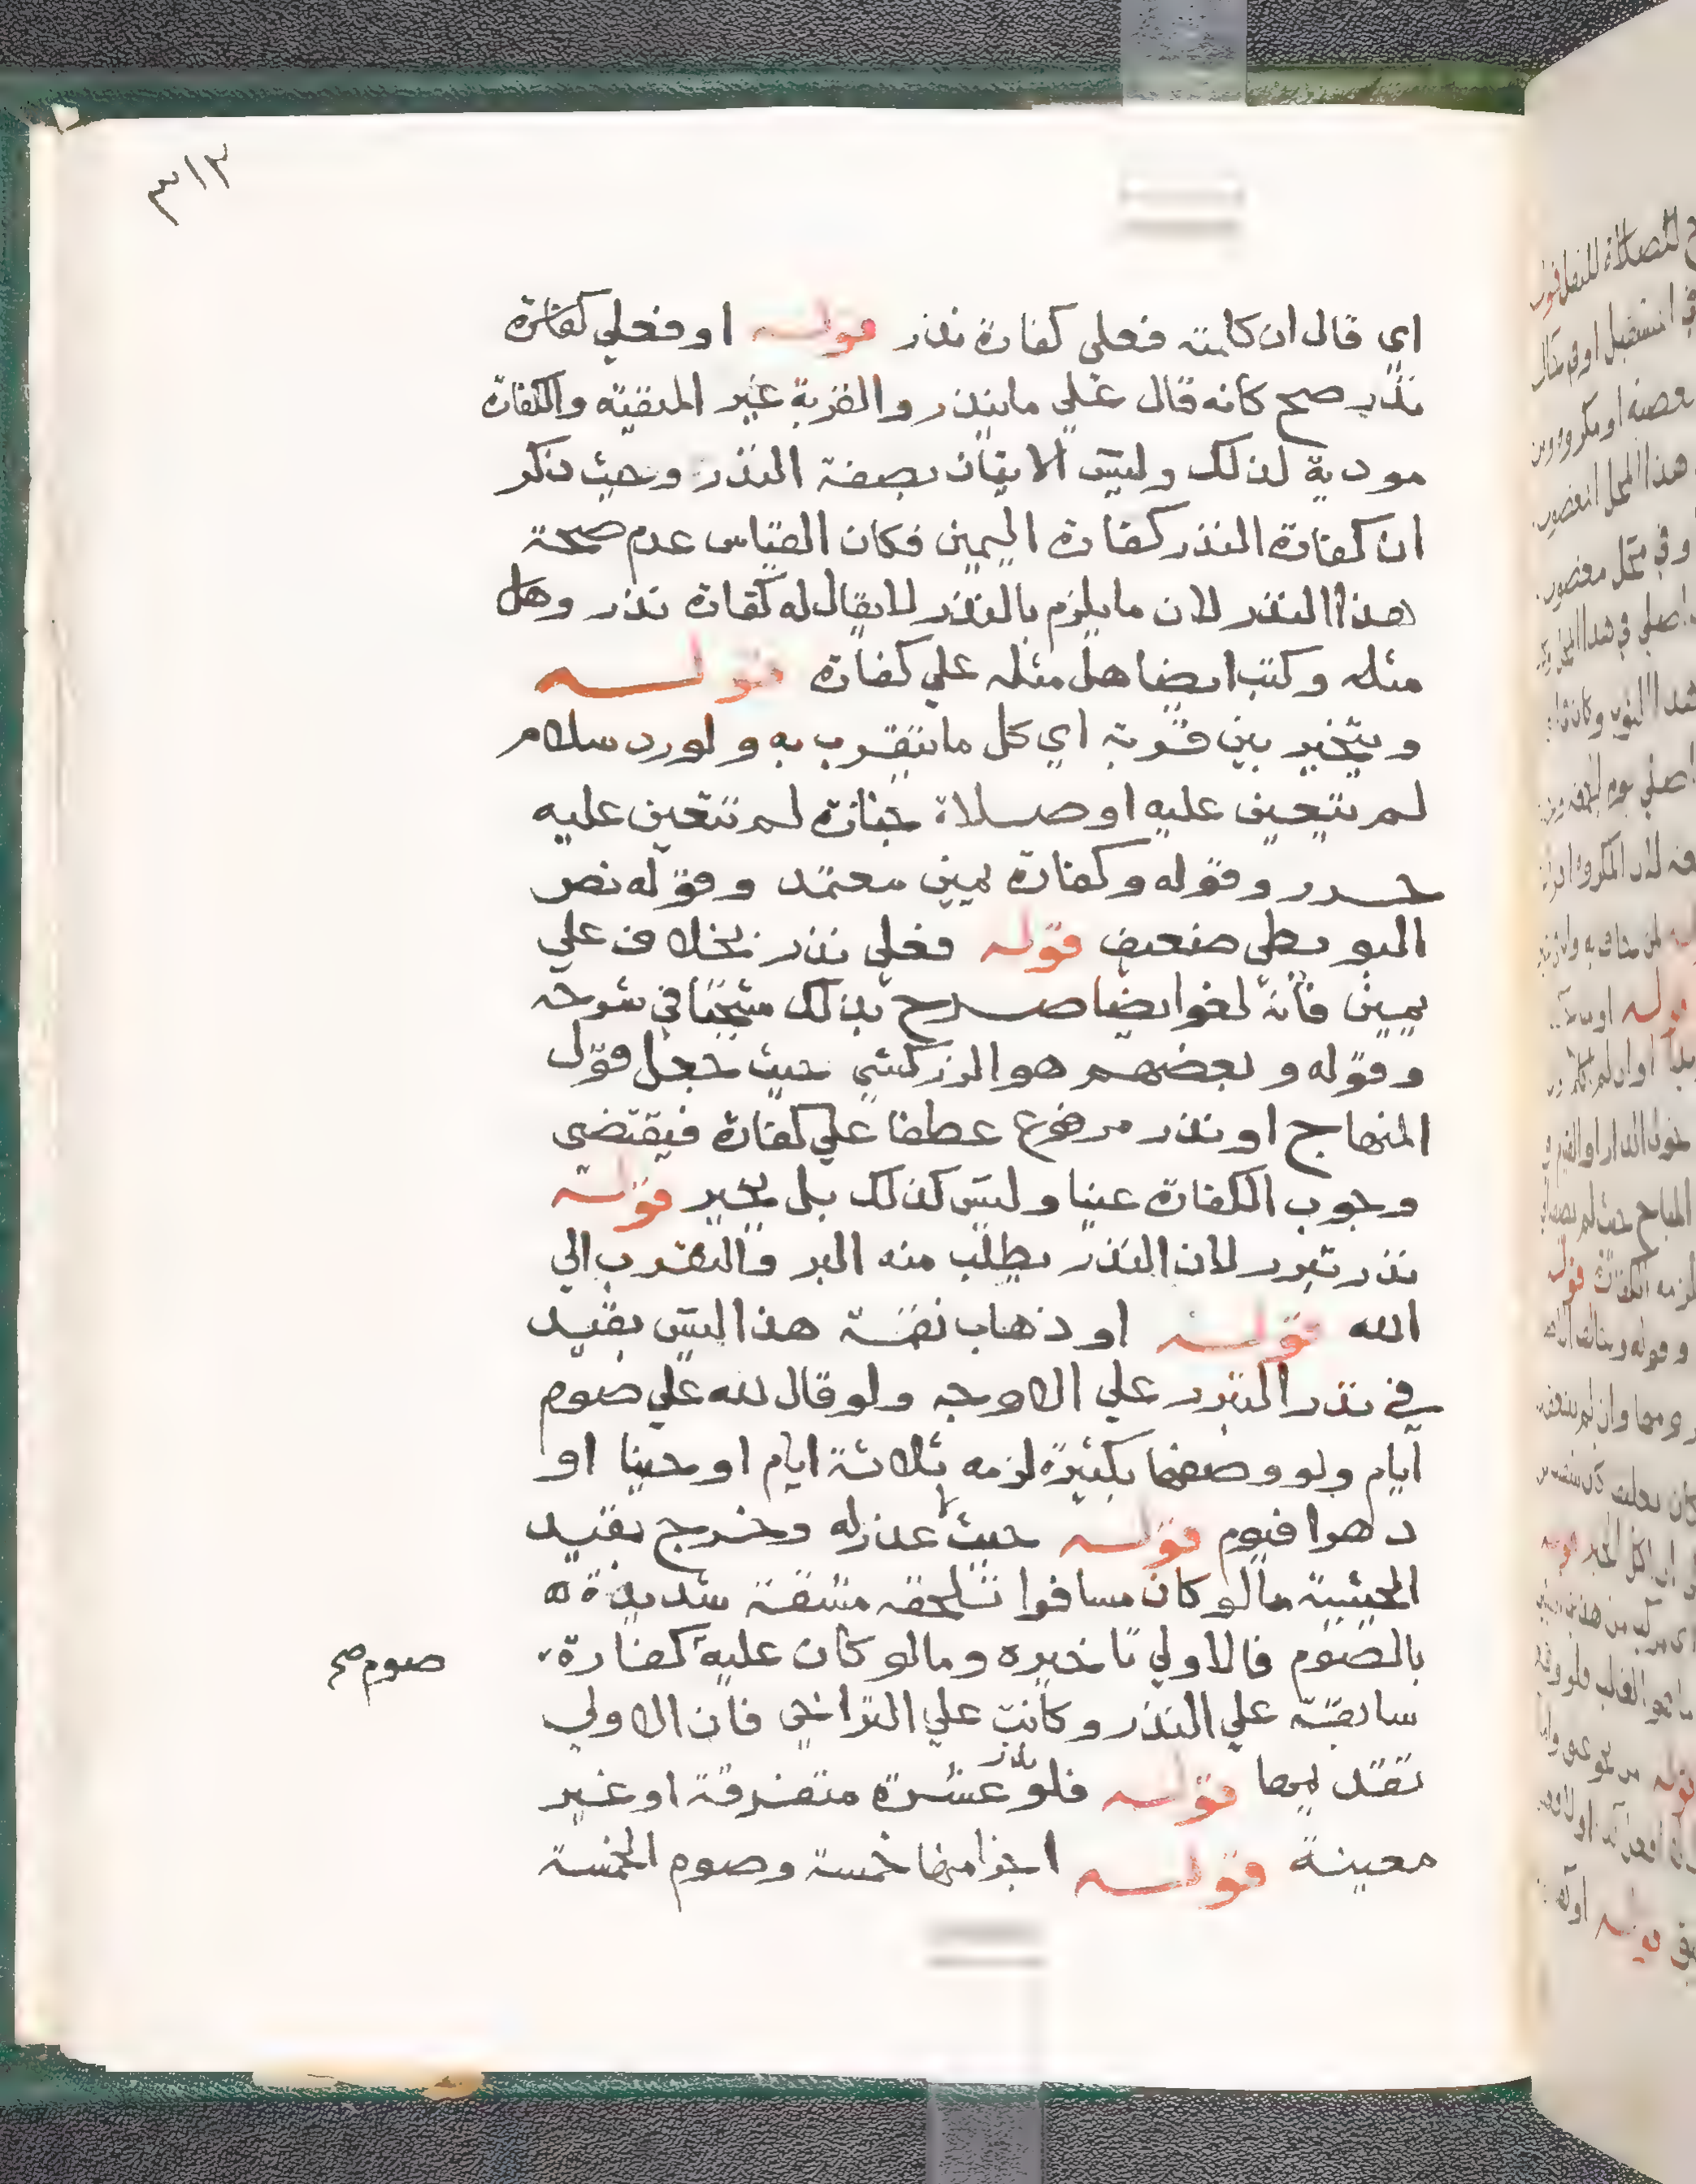 ٣١٣
اي قال ان كلمته فعلي كفارة نذر قوله او فعلي كفارة
نذر صح كانه قال علي ما ينذر والقربة غير المنفية والكفارة
مودية لذلك وليس الاتيان بصفة النذر وحيث ذكر
ان كفارة النذر كفارة اليمين فكان القياس عدم صحة
هذا النذر لان ما يلزم بالنذر لا يقال له كفارة نذر وهل
مثله وكتب ايضا هل مثله علي كفارة قوله
ويتخير بين قربة اي كل ما يتقرب به ولو رد سلام
لم يتعين عليه او صلاة جنازة لم تتعين عليه
حرر وقوله وكفارة يمين معتمد وقوله نص
البويطي ضعيف قوله فعلي نذر بخلاف علي
يمين فانه لغو ايضا صرح بذلك شيخنا في شرحه
وقوله وبعضهم هو الزركشي حيث جعل قول
المنهاج او نذر مرفوع عطفا علي كفارة فيقتضي
وجوب الكفارة عينا وليس كذلك بل يخير قوله
نذر تبرر لان النذر يطلب منه البر والتقرب الي
الله قوله او ذهاب نقمة هذا ليس بقيد
في نذر التبرر علي الاوجه ولو قال لله علي صوم
ايام ولو وصفها بكثيرة لزمه ثلاثة ايام او حينا او
دهرا فيوم قوله حيث لا عذر له وخرج بقيد
الحيثية ما لو كان مسافرا تلحقه مشقة شديدة
بالصوم فالاولي تاخيره وما لو كان عليه كفارة
صوم صح
سابقة علي النذر وكانت علي التراخي فان الاولي
تقديمها قوله فلو نذر عشرة متفرقة او غير
معينة قوله اجزا منها خمسة وصوم الخمسة